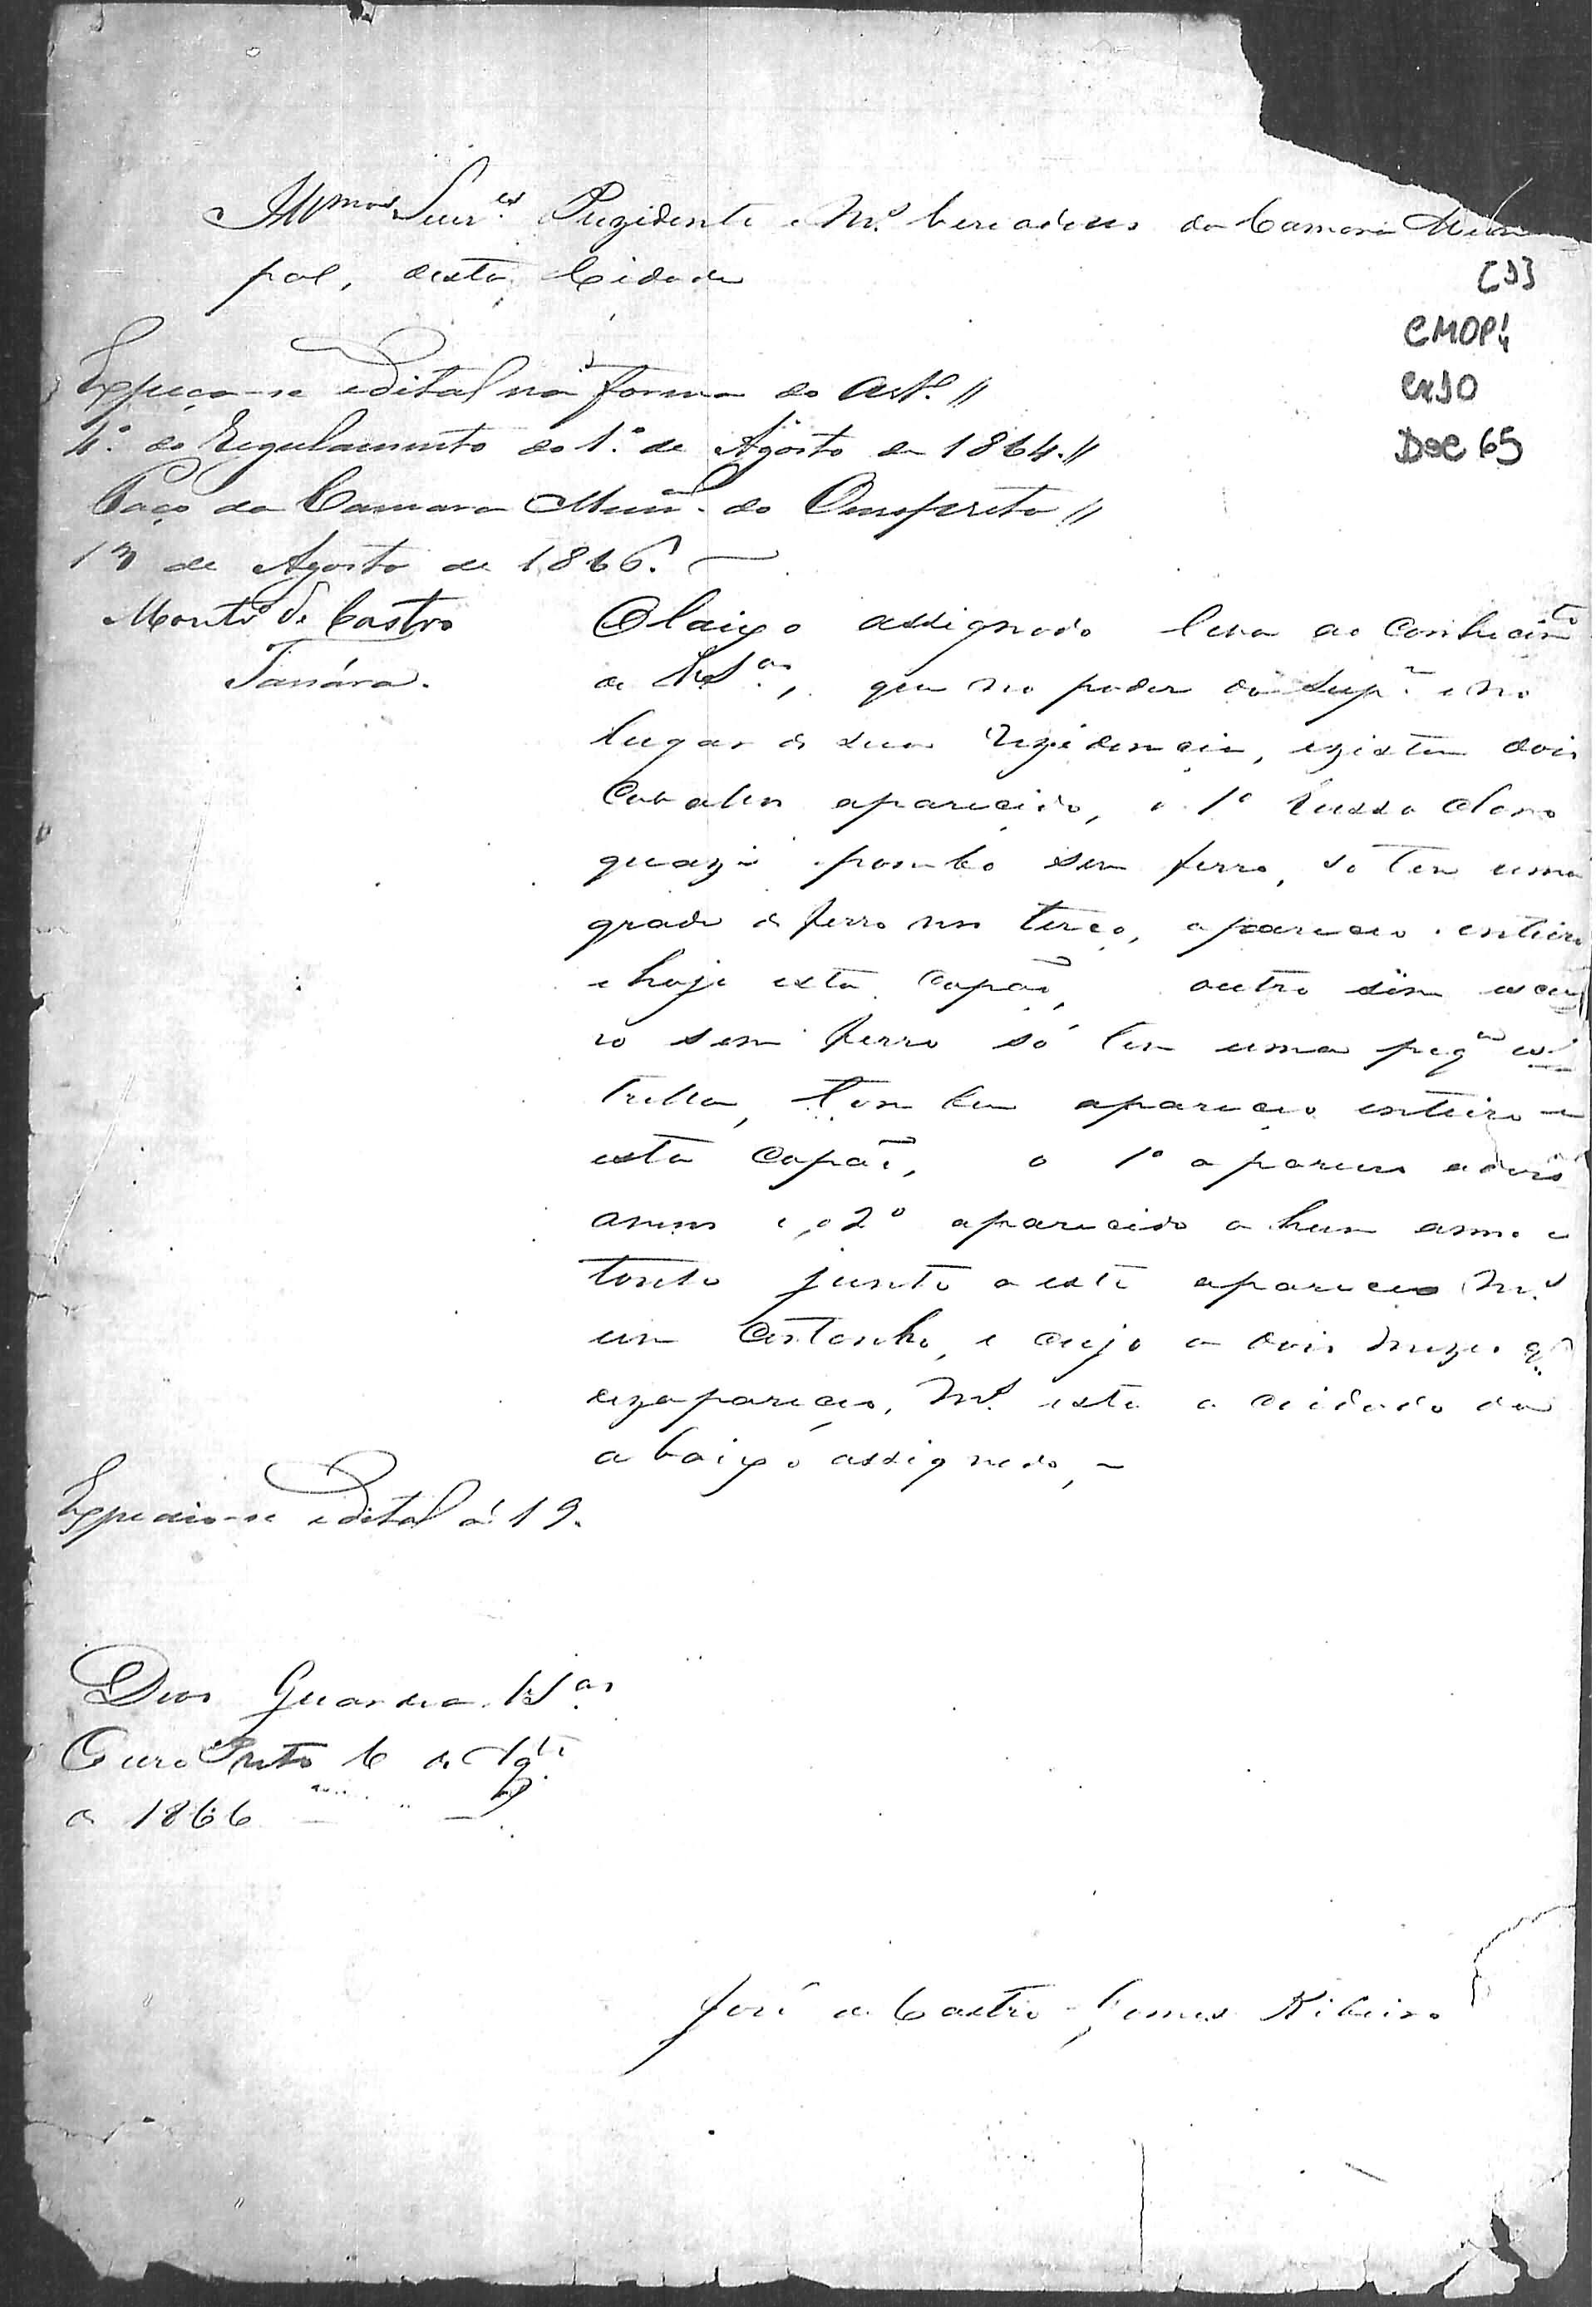 Illmos Snres Prezidente e Ms. Vereadores da Camara Muni
pal, desta Cidade
[1]
CMOP
Cx10
Doc 65
Expeça-se edital na forma do Art.º //
4.º do Regulamento do 1.º de Agosto de 1864. //
Paço da Camara Mun. do Ouropreto //
13 de Agosto de 1866.
Montr.º de Castro
Tassára.
Obaixo assignado leva ao conhecimto
de V.Sas, que no poder do Supe e no
lugar de sua rezidencia, ezistem dois
Cavalos aparecido, o 1º Russo claro
quazi pombo sem ferro, só tem uma
grade de ferro no terço, apareceo inteiro
e hoje esta capão, outro sim escu
ro sem ferro só tem uma peqna es
trella, tambem apareceo inteiro e
esta Capão, o 1º apareceo a dois
annos e o 2º aparecido a hum anno e
tanto junto a este apareceo Ms.
um Castanho, e cujo a dois mezes q.
dezapareceo, Ms. esta a cuidado do
abaixo assignado,
Expedio-se edital á 19.
Deos Guarde a V.Sas
Ouro Preto 6 de Agto
de 1866
José de Castro Gomes Ribeiro